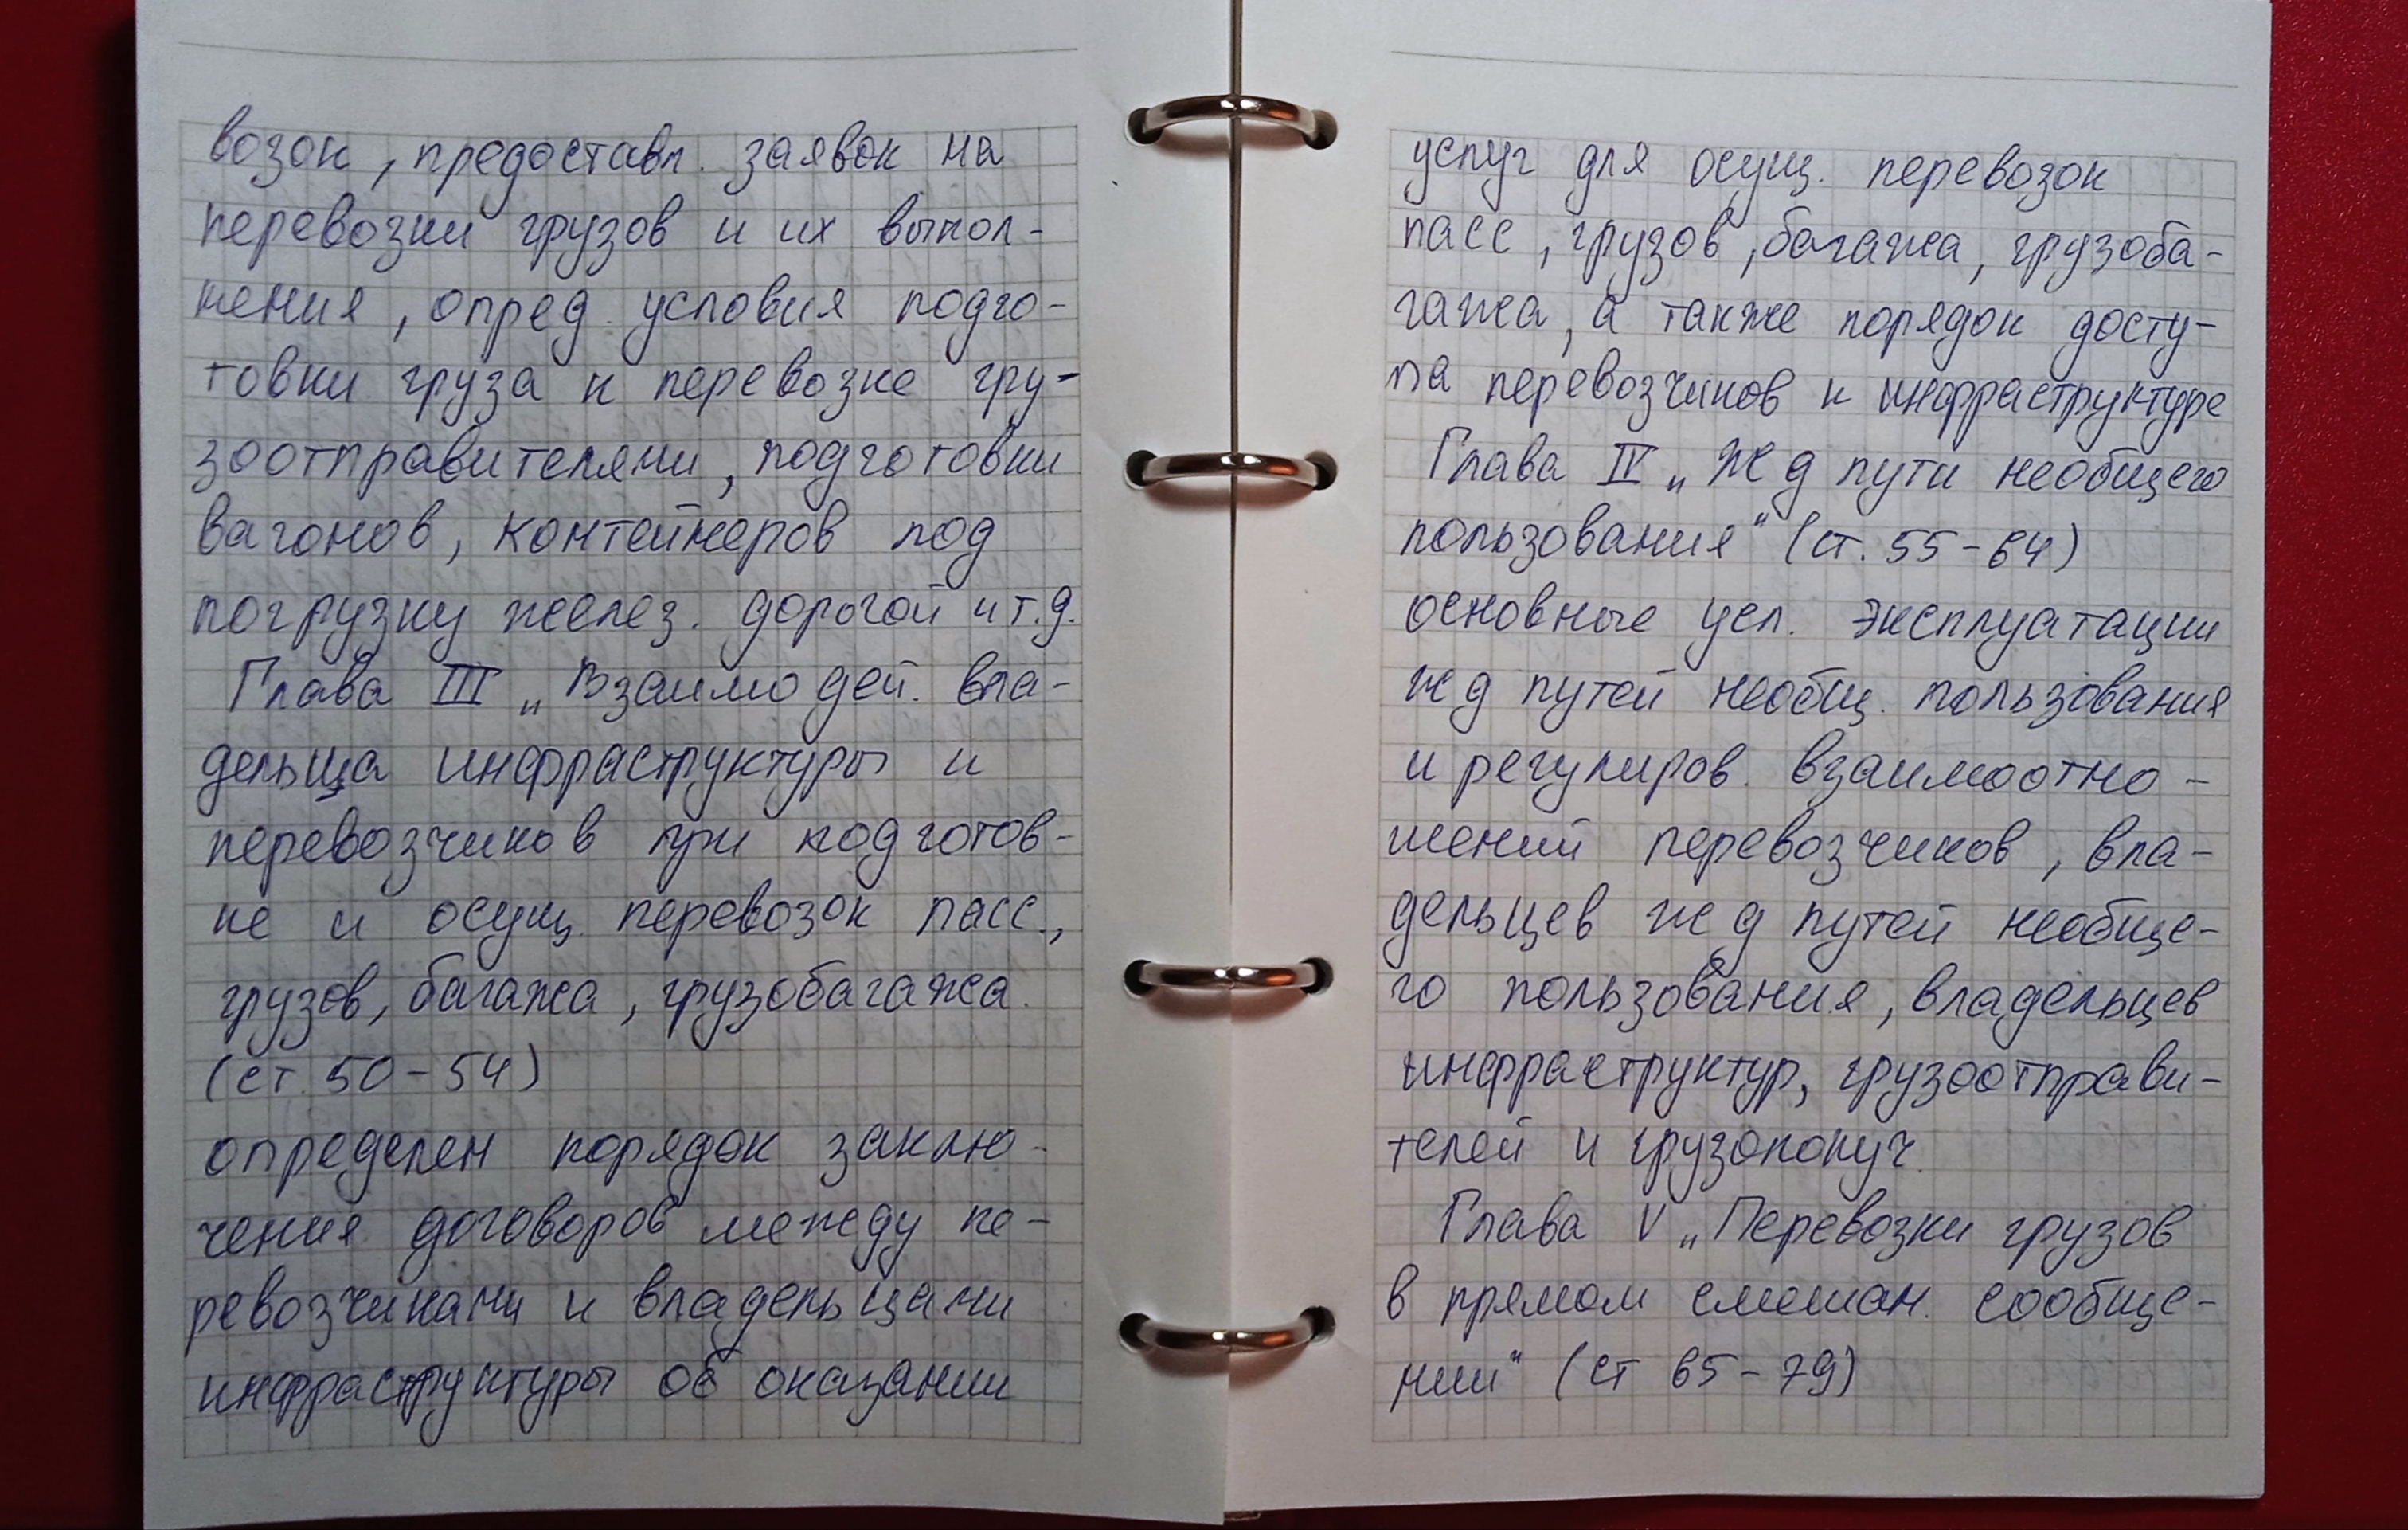 возок, предоставл. заявок на
перевозки грузов и их выпол-
нения, опред. условия подго-
товки груза к перевозке гру-
зоотправителями, подготовки
вагонов, контейнеров под
погрузку желез. дорогой и т.д.
Глава III „Взаимодей. вла-
дельца инфраструктуры и
перевозчиков при подготов-
ке и осущ. перевозок пасс.,
грузов, багажа, грузобагажа.
(ст. 50-54)
определен порядок заклю-
чения договоров между пе-
ревозчиками и владельцами
инфраструктуры об оказании
услуг для осущ. перевозок
пасс, грузов, багажа, грузоба-
гажа, а также порядок досту-
па перевозчиков к инфраструктуре
Глава IV „Ж д пути необщего
пользования" (ст. 55-64)
основные усл. эксплуатации
ж д путей необщ. пользования
и регулиров. взаимоотно-
шений перевозчиков, вла-
дельцев ж д путей необще-
го пользования, владельцев
инфраструктур, грузоотправи-
телей и грузополуч.
Глава V „Перевозки грузов
в прямом смешан. сообще-
нии" (ст 65-79)